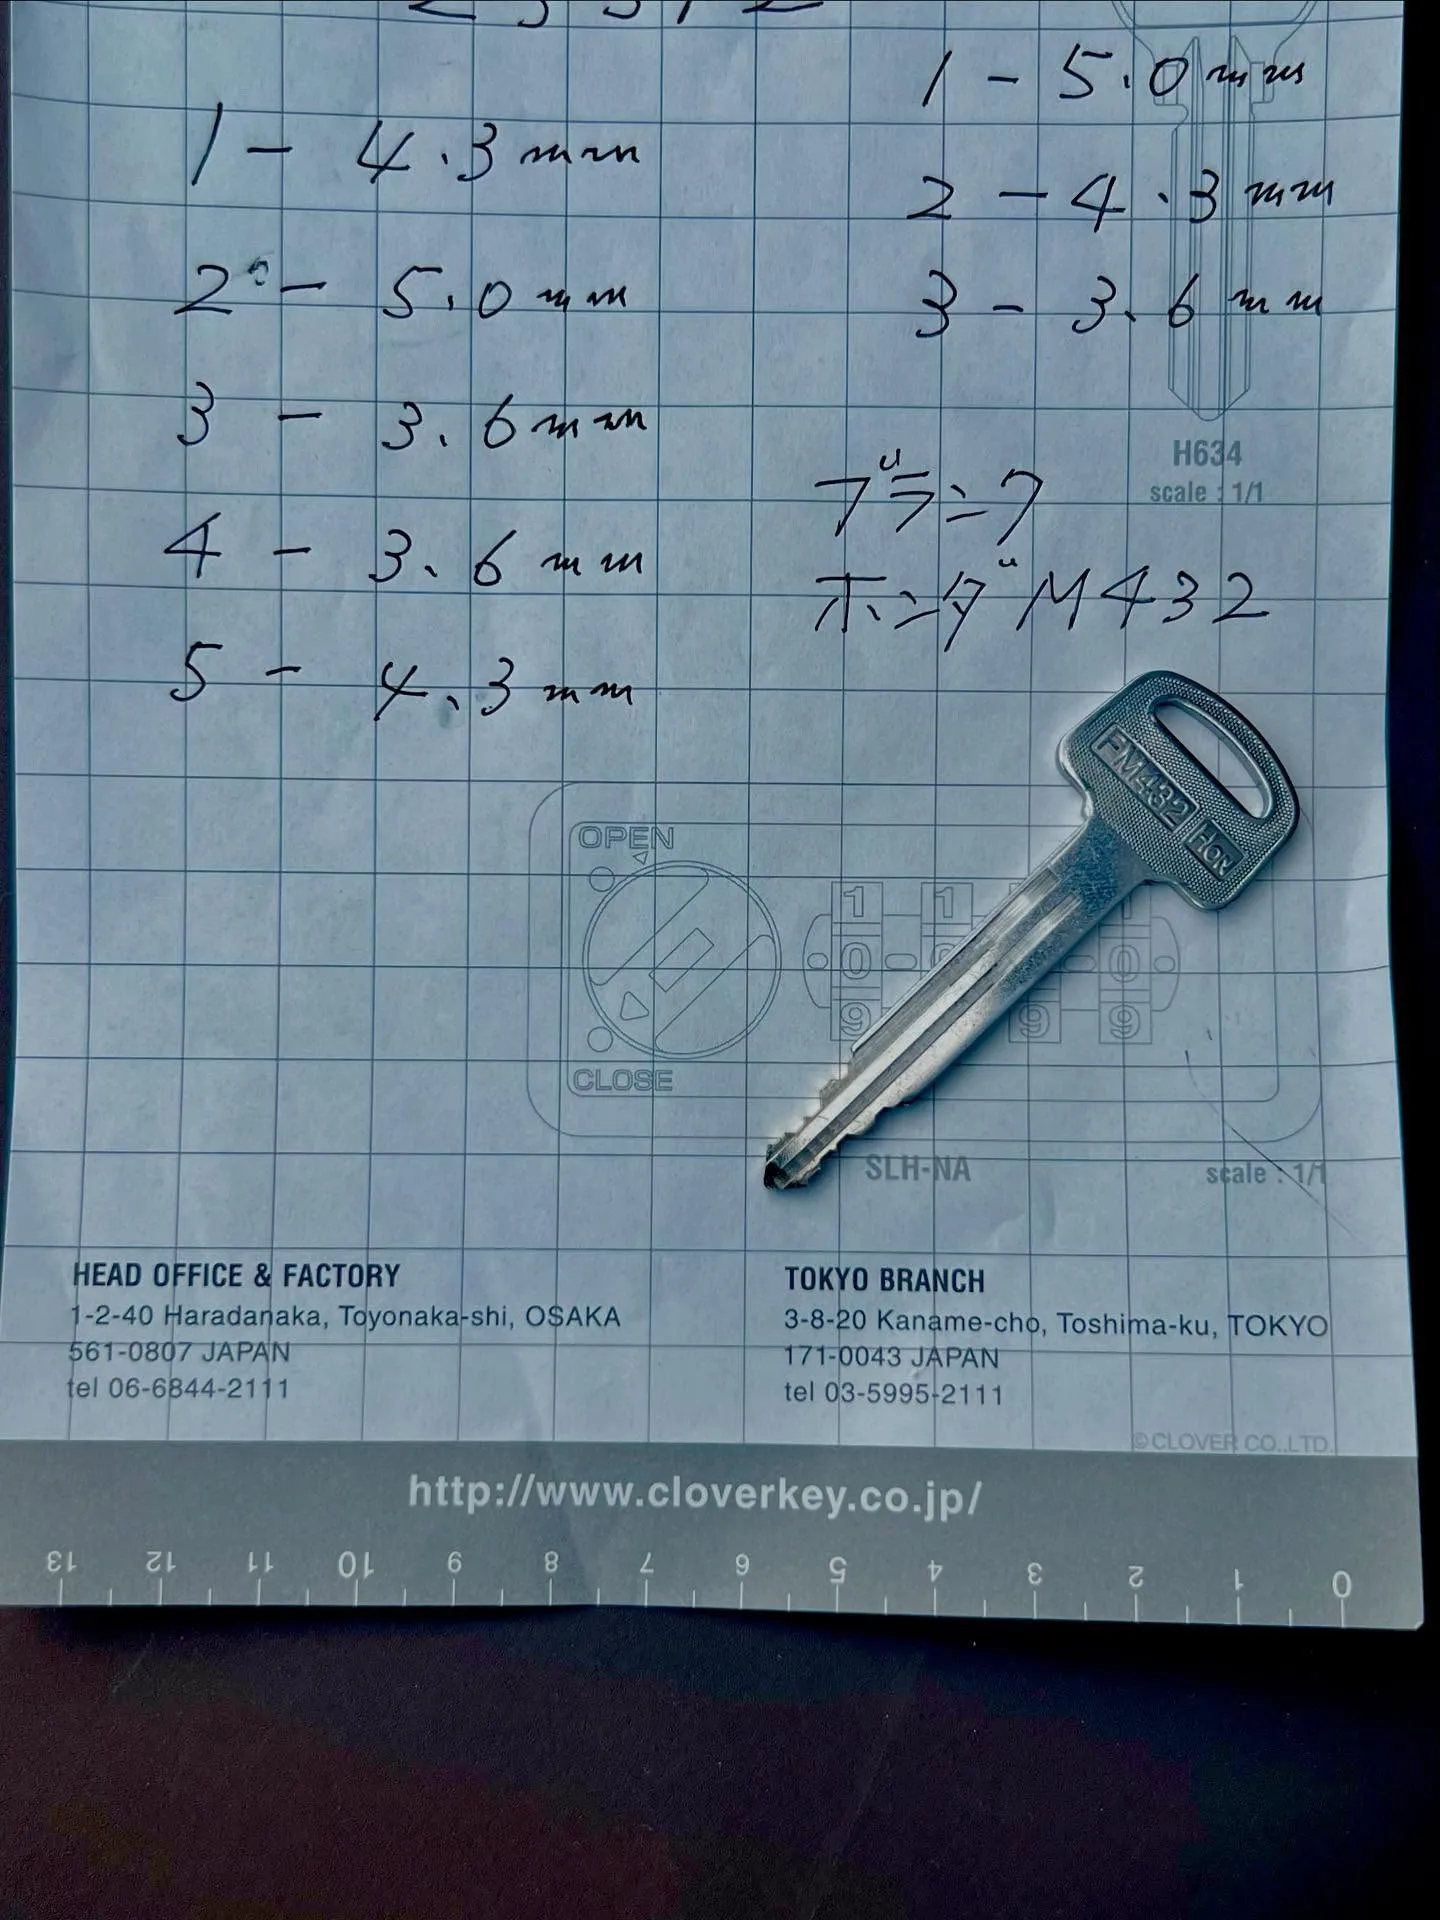 1 - 5.0mm
1 - 4.3mm
2 - 4.3mm
2 - 5.0mm
3 - 3.6mm
3 - 3.6mm
H634
scale : 1/1
ブランク
4 - 3.6mm
ホンダM432
5 - 4.3mm
FM432
HON
OPEN
1 1 1
0 0 0
9 9 9
CLOSE
SLH-NA
scale : 1/1
HEAD OFFICE & FACTORY
1-2-40 Haradanaka, Toyonaka-shi, OSAKA
561-0807 JAPAN
tel 06-6844-2111
TOKYO BRANCH
3-8-20 Kaname-cho, Toshima-ku, TOKYO
171-0043 JAPAN
tel 03-5995-2111
©CLOVER CO.,LTD.
http://www.cloverkey.co.jp/
13 12 11 10 9 8 7 6 5 4 3 2 1 0